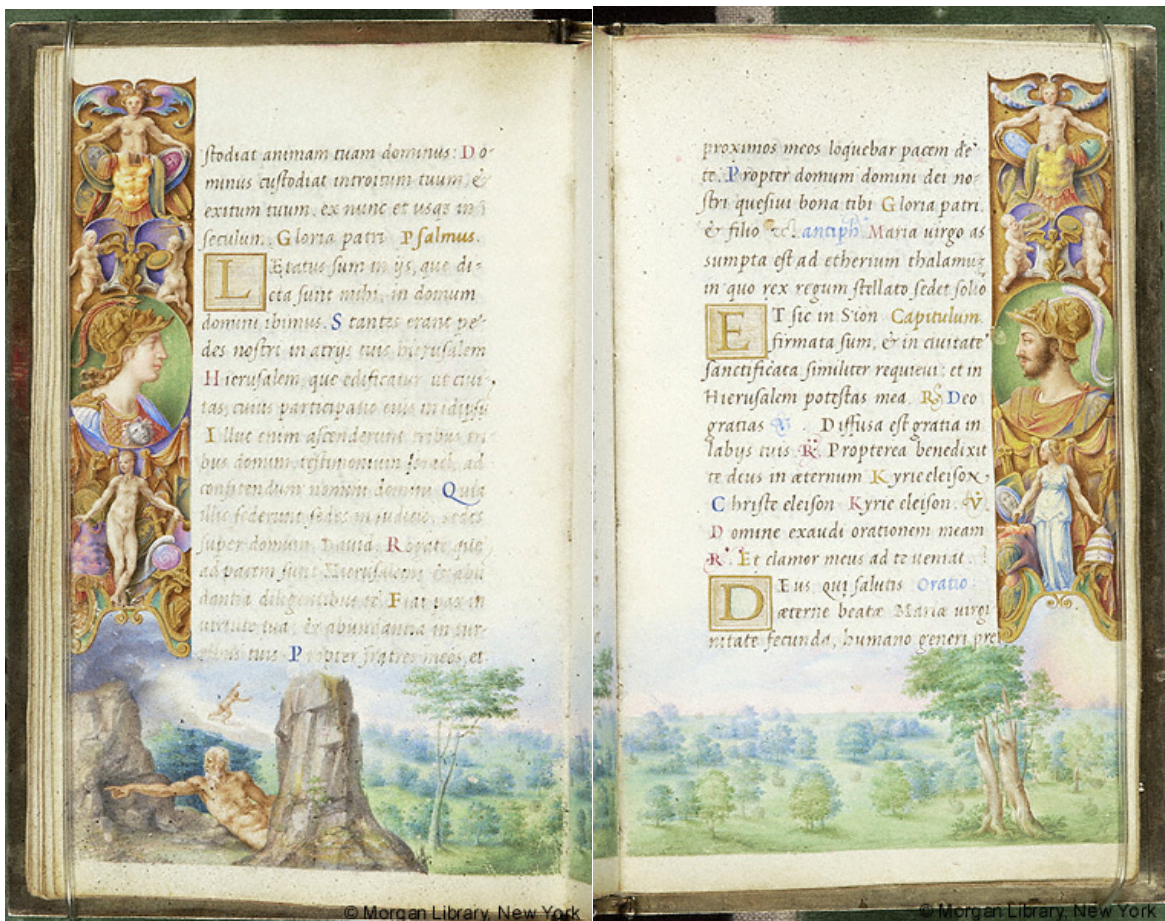 stodiat animam tuam dominus: Do-
minus custodiat introitum tuum, &
exitum tuum. ex nunc et usq3 in
seculum. Gloria patri Psalmus.
LÆtatus sum in ijs, que di-
cta sunt mihi, in domum
domini ibimus. Stantes erant pe-
des nostri in atrijs tuis hierusalem
Hierusalem, que edificatur ut ciui-
tas, cuius participatio eius in idipsu
Illuc enim ascenderunt tribus tri-
bus domini, testimonium Israel, ad
confitendum nomini domini Quia
illic sederunt sedes in iudicio, sedes
super domum David. Rogate que
ad pacem sunt Hierusalem: & abu
dantia diligentibus te. Fiat pax in
uirtute tua, & abundantia in tur-
ribus tuis Propter fratres meos, et
proximos meos loquebar pacem de
te. Propter domum domini dei no-
stri quesiui bona tibi Gloria patri.
& filio &c. antiph Maria uirgo as
sumpta est ad etherium thalamu3
in quo rex regum stellato sedet solio
ET sic in Sion Capitulum.
firmata sum, & in ciuitate
sanctificata similiter requieui: et in
Hierusalem potestas mea. R Deo
gratias V. Diffusa est gratia in
labijs tuis R. Propterea benedixit
te deus in æternum Kyrie eleison
Christe eleison Kyrie eleison. V
Domine exaudi orationem meam
R. Et clamor meus ad te ueniat.
DEus qui salutis Oratio
æterne beatæ Mariæ uirgi
nitate fecunda, humano generi pre
© Morgan Library, New York
© Morgan Library, New York